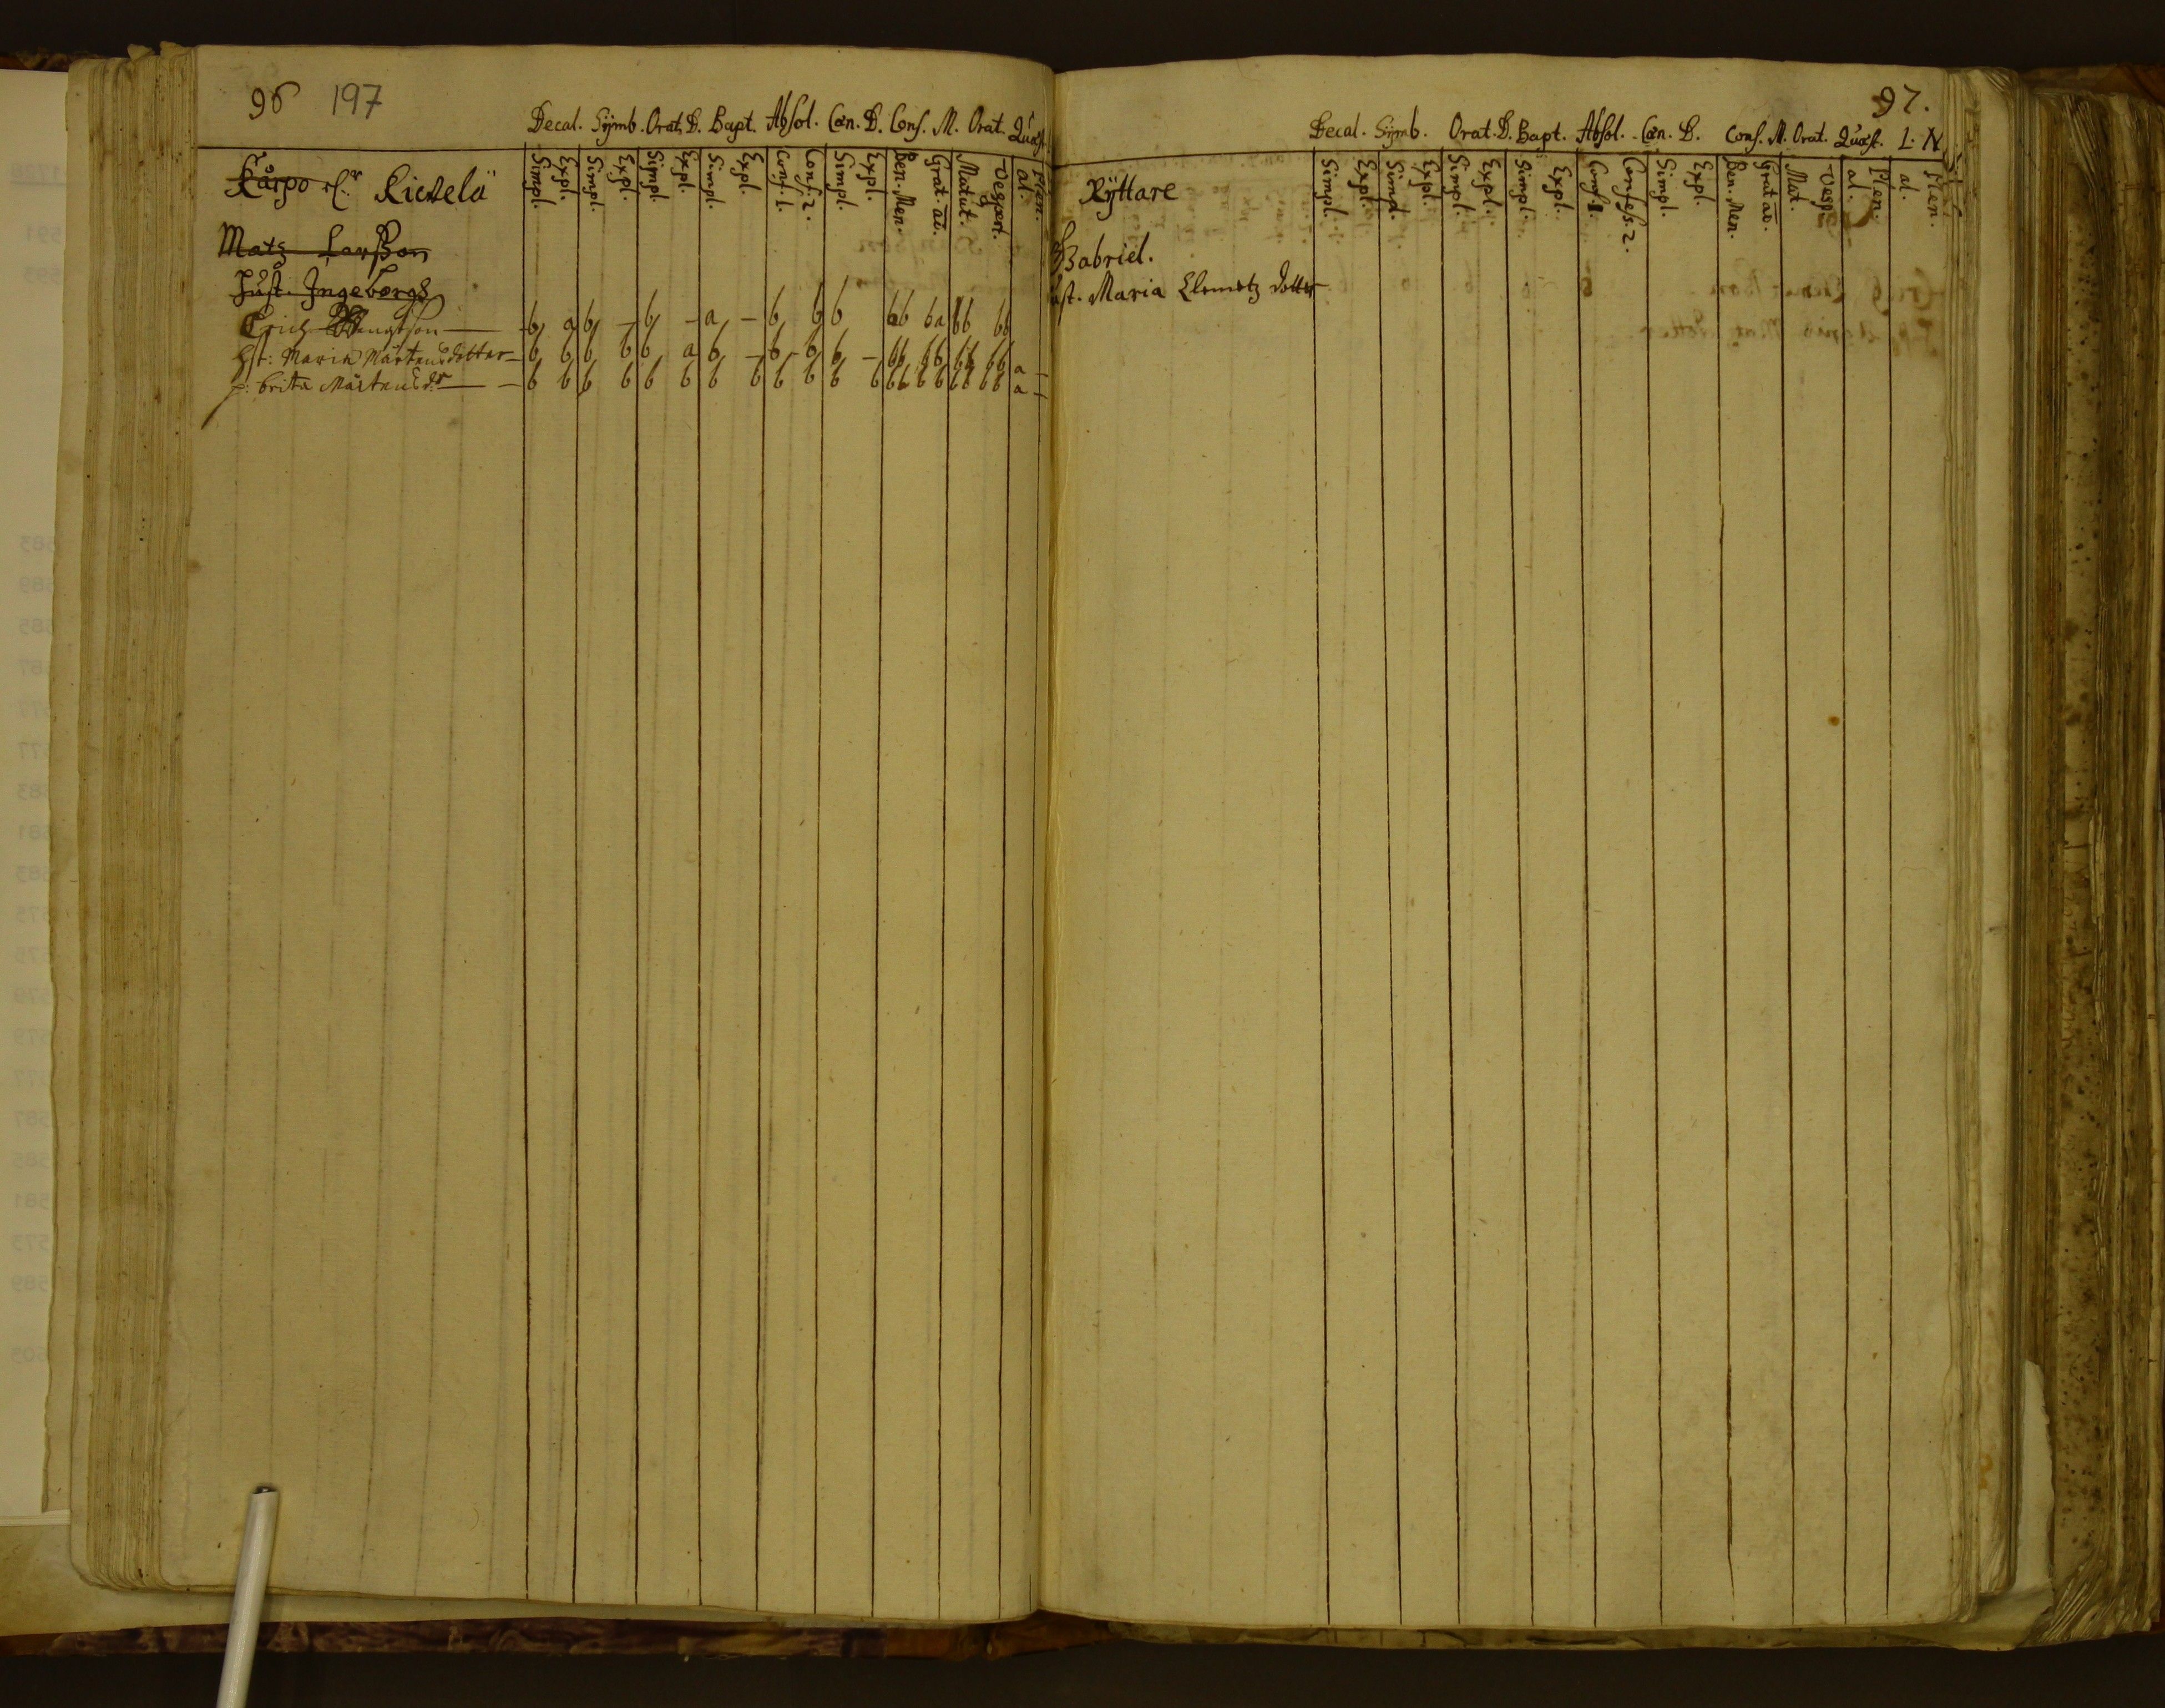 96 197
Decal. Sÿmb. Orat. D. Bapt. Absol. Cœn. D. Conf. M. Orat. Quæst.
Simpl. Expl. Simpl. Expl. Simpl. Expl. Simpl. Expl. Conf. 1. Conf. 2. Simpl. Expl. Ben. Men. Grat. ac. Matut. Vespert. al. Plen.
Kårpo Kickelä
Matz Larsson
Hust. Ingeborg
Erich son b a b – b – a – b b b bb ba bb bb
Hst: Maria Mårtensdotter b b b b b a b – b b b – bb bb bb bb a –
p: brita Mårtens dr b b b b b b b b b b b b bb bb bb bb a –
97.
Decal. Sÿmb. Orat. D. Bapt. Absol. Cœn. D. Conf. M. Orat. Quæst. L. N
Simpl. Expl. Simpl. Expl. Simpl. Expl. Simpl. Expl. Conf. 1 Confess. 2. Simpl. Expl. Ben. Men. Grat. ac. Mat. Vesp. al. Plen. al. Plen.
Rÿttare
Gabriel.
ust. Maria Clemetz dotter